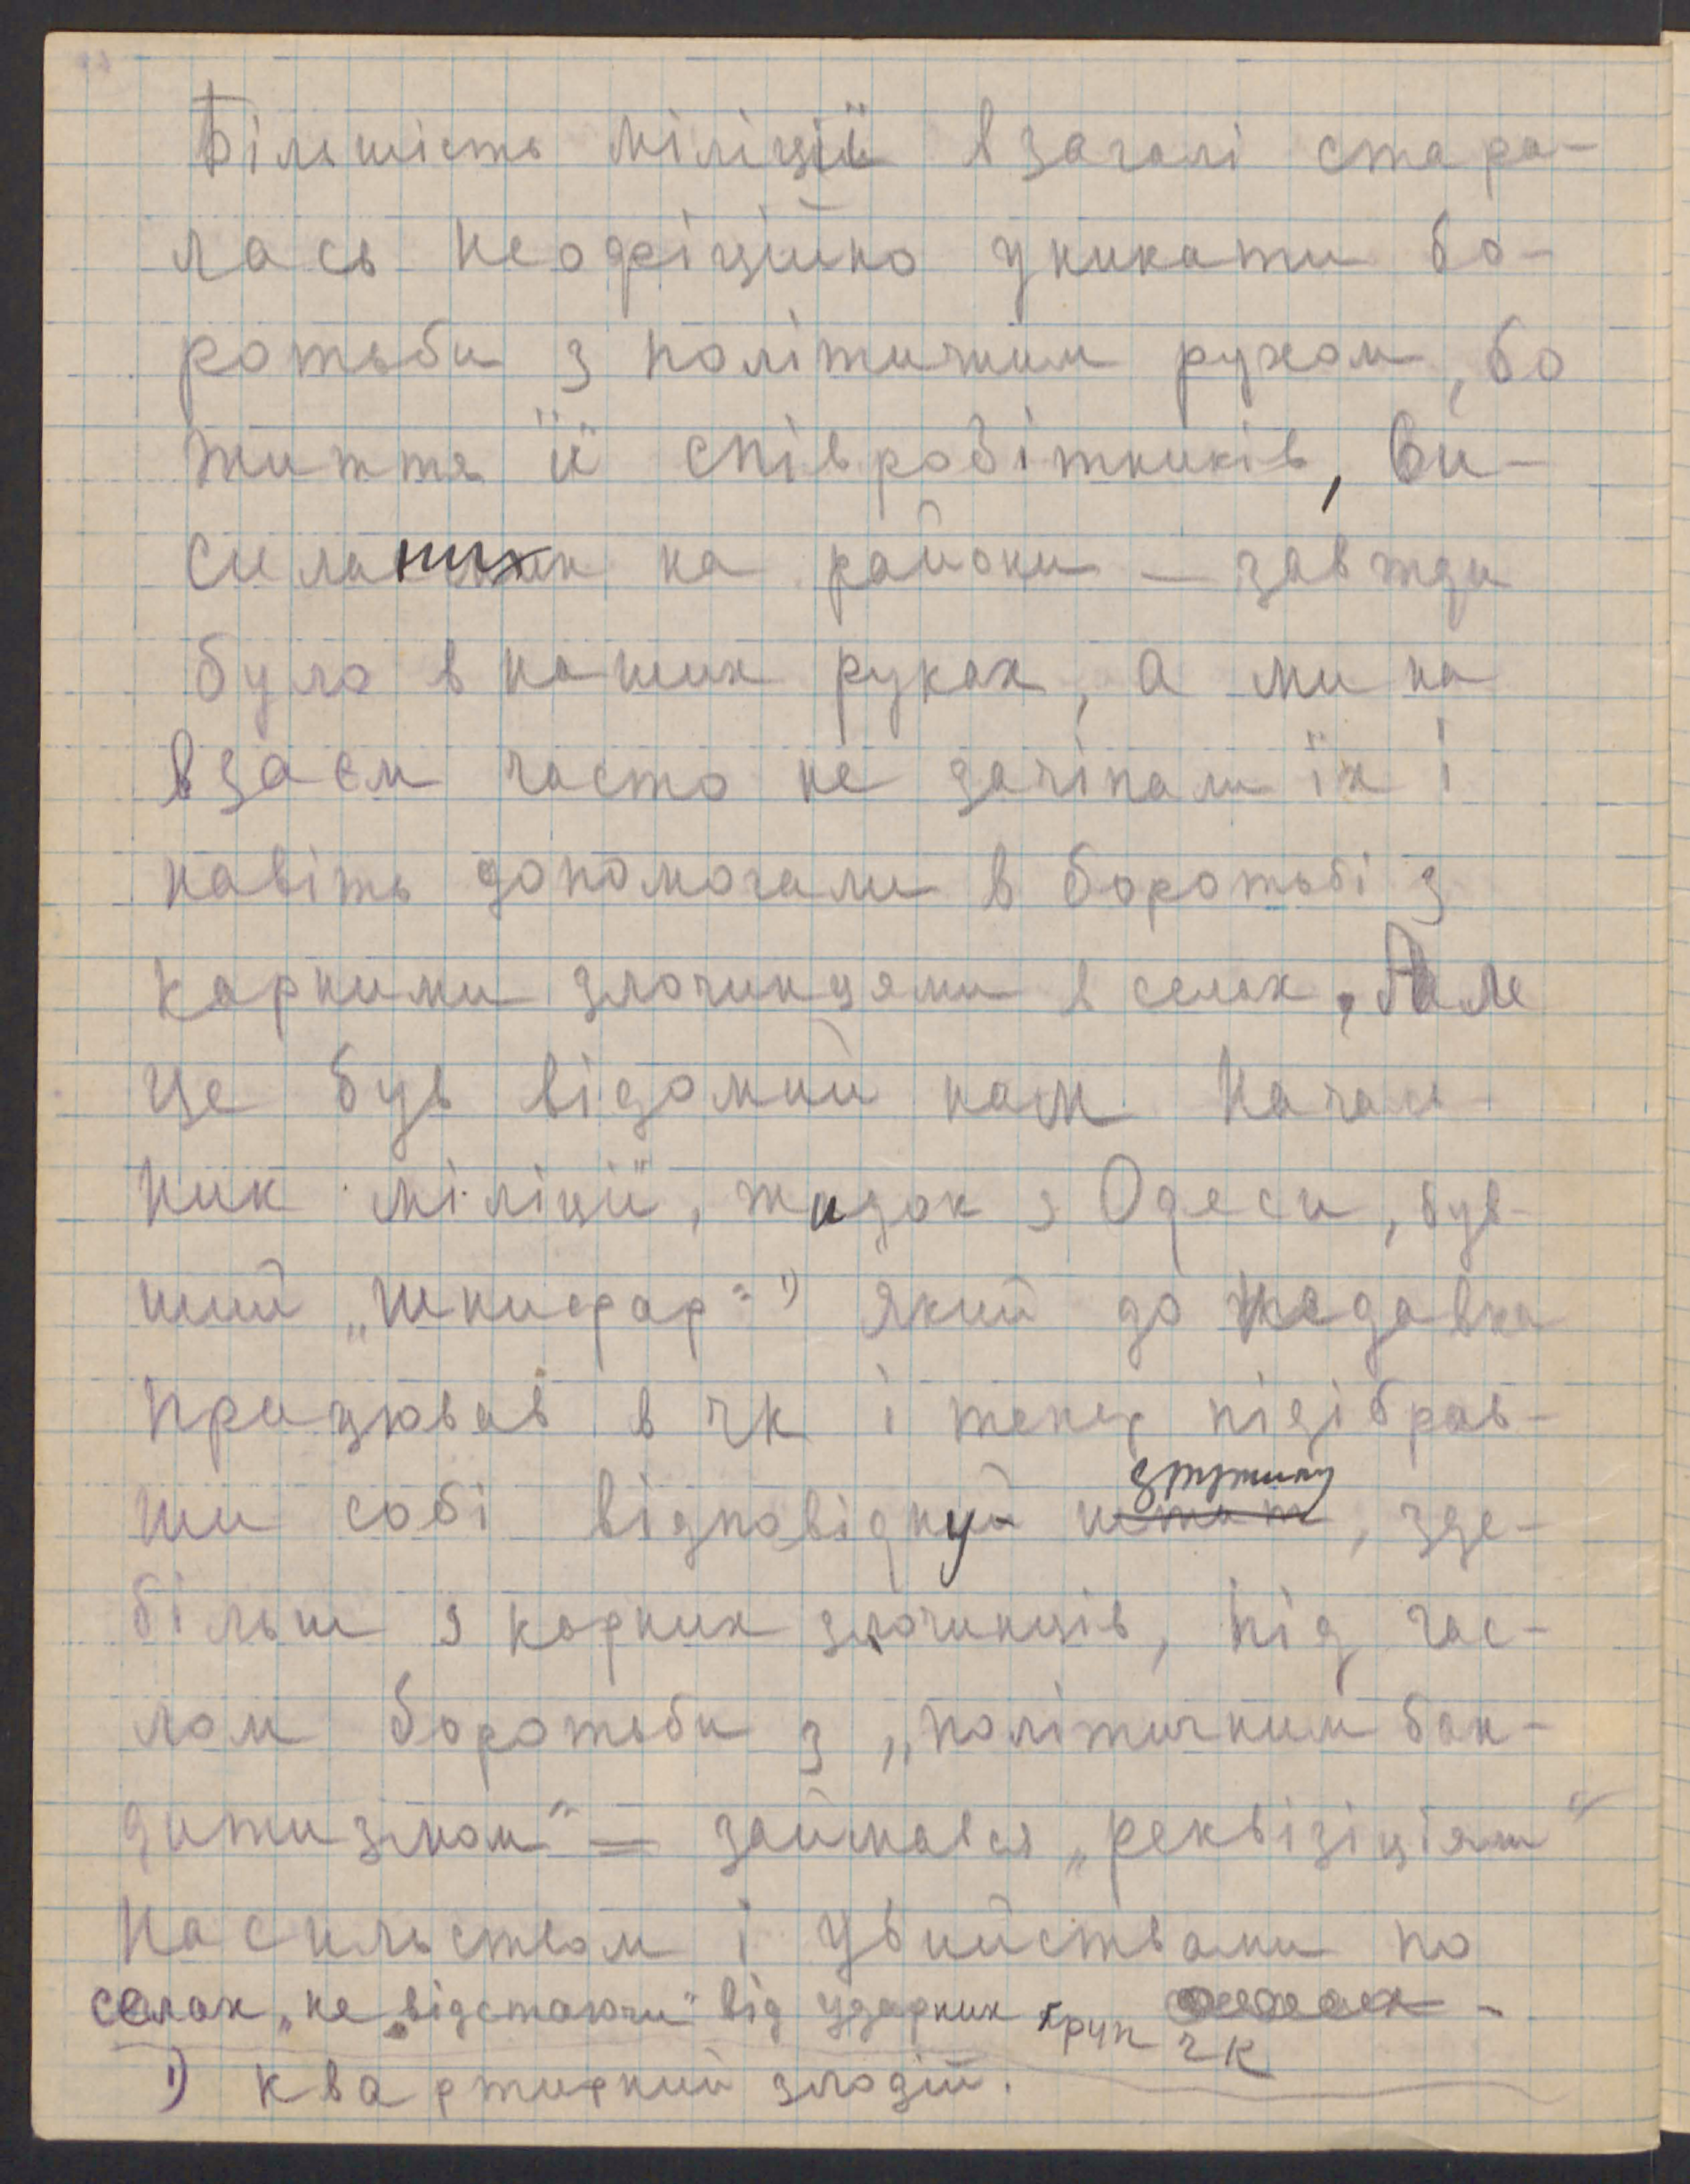 Більшість міліції взагалі стара-
лась неофіційно уникати бо-
ротьби з політичним рухом, бо
життя її співробітників, ви-
силаних на райони — завжди
було в наших руках, а ми на
взаєм часто не зачіпали їх і
навіть допомогали в боротьбі з
карними злочинцями в селах. Але
це був відомий нам началь-
ник міліції, жидок з Одеси, був-
ший „шнифар“ 1) який до недавна
працював в чк і тепер підібрав-
ши собі відповідну дружину, зде-
більш з карних злочинців, під гас-
лом боротьби з „політичним бан-
дитизмом“ — займався „реквізіціями“
насильством і убийствами по
селах, „не відстаючи“ від ударних груп чк
1) квартирний злодій.